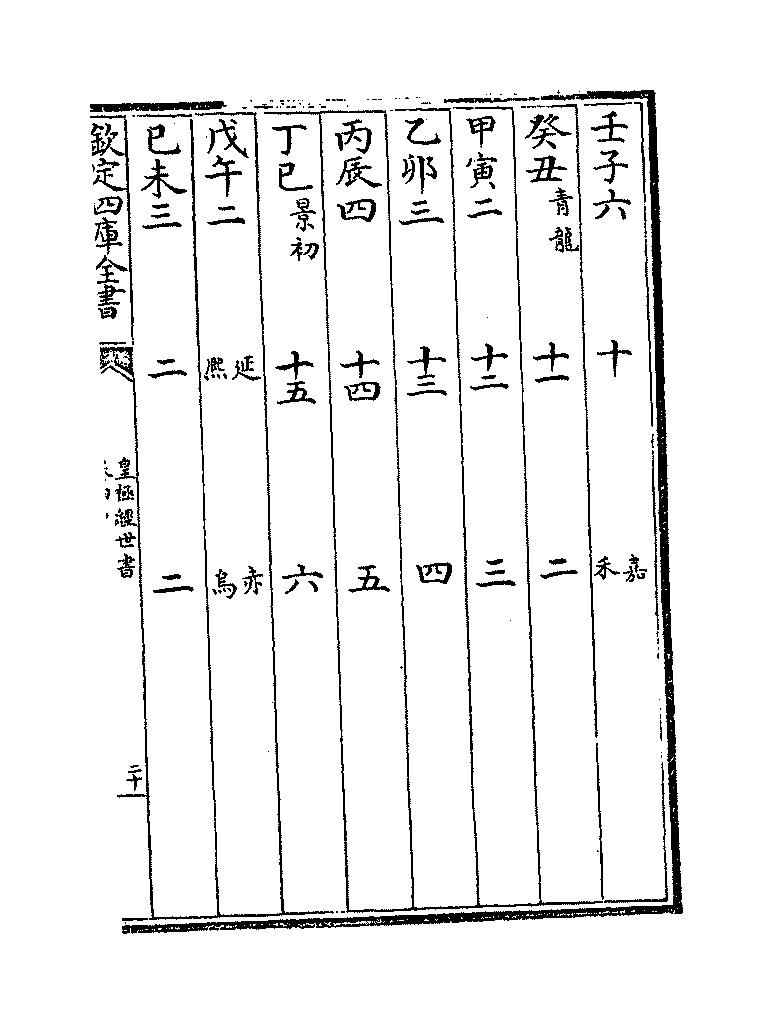 壬子六 十 嘉禾
癸丑青龍 十一 二
甲寅二 十二 三
乙卯三 十三 四
丙辰四 十四 五
丁巳景初 十五 六
戊午二 延熙 赤烏
已未三 二 二
欽定四庫全書
皇極經世書
二十